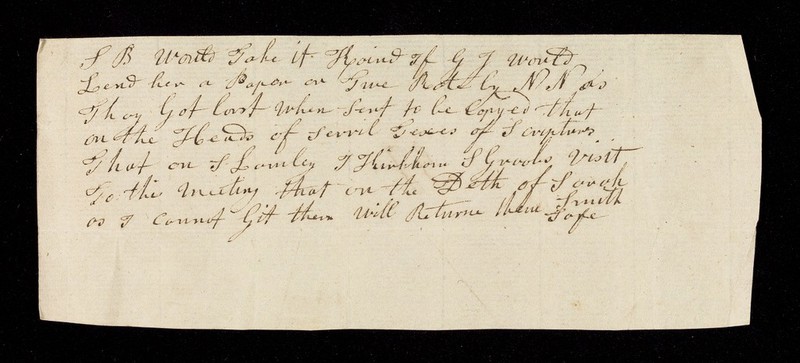 S B Would Take it Koind If G J Would
Lend her a Paper or Twe Rote by N N as
Thay Got Lorst when Sent to be Copyed that
on the Heads of Serril Texes of Scripturs
That on S Lomley T Kirkham S Groobs, Visit
To this Meeting that on the Deth of Sarah
Smith
as I Connot Git them Will Returne them Safe